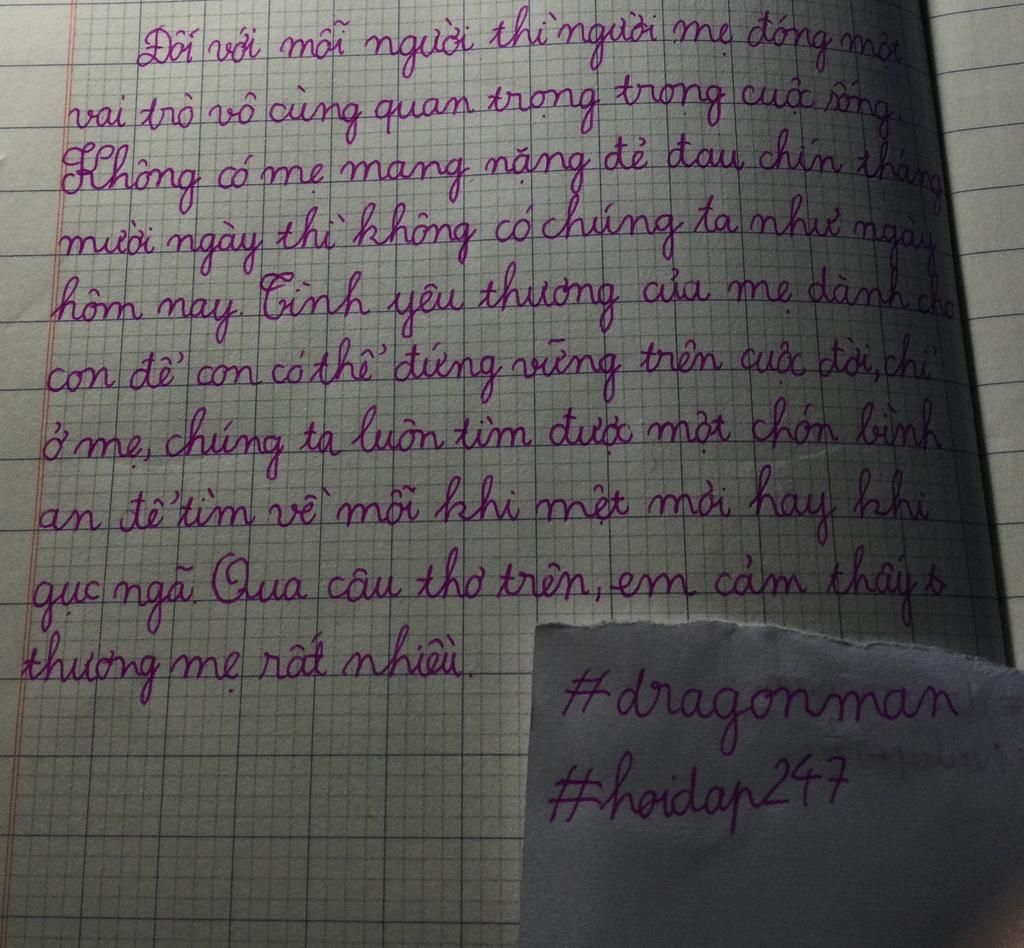 Đối với mỗi người thì người mẹ đóng một
vai trò vô cùng quan trọng trọng cuộc sống.
Không có mẹ mang nặng đẻ đau chín tháng
mười ngày thì không có chúng ta như ngày
hôm nay. Tình yêu thương của mẹ dành cho
con để con có thể đứng vững trên cuộc đời, chỉ
ở mẹ, chúng ta luôn tìm được một chốn bình
an để tìm về mỗi khi mệt mỏi hay khi
gục ngã. Qua câu thơ trên, em cảm thấy
thương mẹ rất nhiều.
#dragonman
#hoidap247